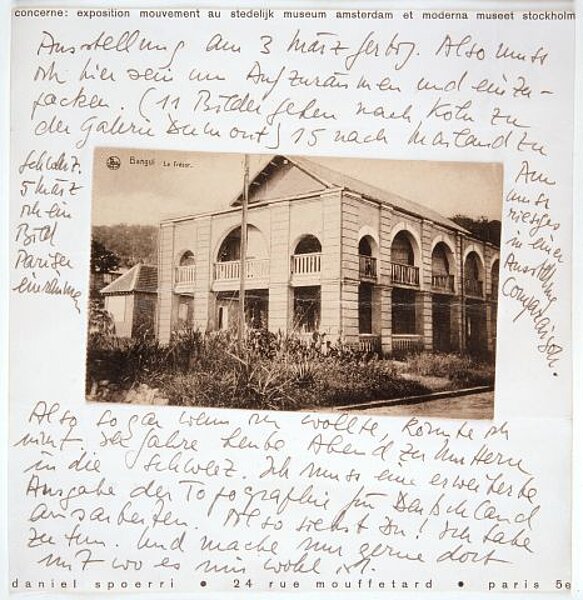 concerne: exposition mouvement au stedelijk museum amsterdam et moderna museet stockholm
Ausstellung am 3 März fertig. Also muss
ich hier sein um Aufzuräumen und einzu-
packen. (11 Bilder gehen nach Köln zu
der Galerie Dumont) 15 nach Mailand zu
Schwarz.
5 März
ich ein
Bild
Pariser
einräumen
Am
muss
riesges
in einer
Ausstellung
Comparaison.
Bangui
Le Trésor.
Also sogar wenn ich wollte, könnte ich
nicht
Jahre heute Abend zu
in die Schweiz. Ich muss eine erweiterte
Ausgabe der Topographie für Deutschland
ausarbeiten. Also siehst Du! Ich habe
zu tun. Und mache nur gerne dort
mit wo es mir wohl ist.
daniel spoerri • 24 rue mouffetard • paris 5e